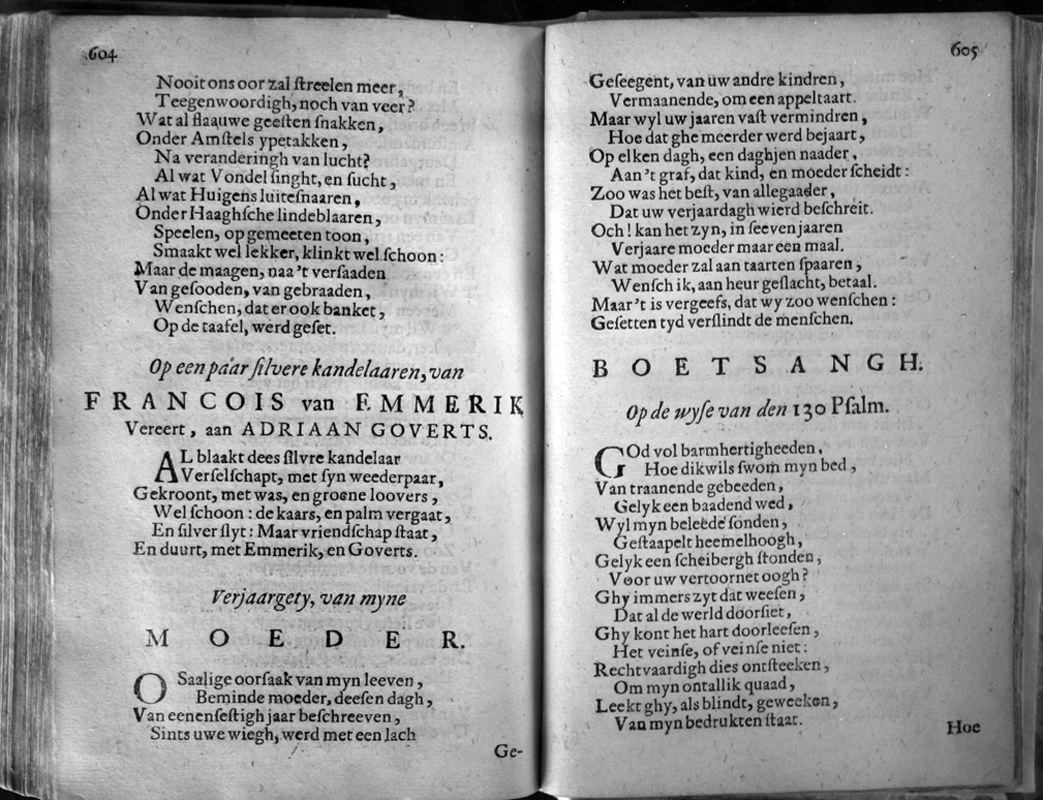 604
Nooit ons oor zal ſtreelen meer,
Teegenwoordigh, noch van veer?
Wat al flaauwe geeſten ſnakken,
Onder Amſtels ypetakken,
Na veranderingh van lucht?
Al wat Vondel ſinght, en ſucht,
Al wat Huigens luiteſnaaren,
Onder Haaghſche lindeblaaren,
Speelen, op gemeeten toon,
Smaakt wel lekker, klinkt wel ſchoon:
Maar de maagen, naa 't verſaaden
Van geſooden, van gebraaden,
Wenſchen, dat er ook banket,
Op de taafel, werd geſet.
Op een paar ſilvere kandelaaren, van
FRANCOIS van EMMERIK
Vereert, aan ADRIAAN GOVERTS.
AL blaakt dees ſilvre kandelaar
Verſelſchapt, met ſyn weederpaar,
Gekroont, met was, en groene loovers,
Wel ſchoon: de kaars, en palm vergaat,
En ſilver ſlyt: Maar vriendſchap ſtaat,
En duurt, met Emmerik, en Goverts.
Verjaargety, van myne
MOEDER.
O Saalige oorſaak van myn leeven,
Beminde moeder, deeſen dagh,
Van eenenſeſtigh jaar beſchreeven,
Sints uwe wiegh, werd met een lach
Ge-
605
Geſeegent, van uw andre kindren,
Vermaanende, om een appeltaart.
Maar wyl uw jaaren vaſt vermindren,
Hoe dat ghe meerder werd bejaart,
Op elken dagh, een daghjen naader,
Aan 't graf, dat kind, en moeder ſcheidt:
Zoo was het beſt, van allegaader,
Dat uw verjaardagh wierd beſchreit.
Och! kan het zyn, in ſeeven jaaren
Verjaare moeder maar een maal.
Wat moeder zal aan taarten ſpaaren,
Wenſch ik, aan heur geſlacht, betaal.
Maar 't is vergeefs, dat wy zoo wenſchen:
Geſetten tyd verſlindt de menſchen.
BOETSANGH.
Op de wyſe van den 130 Pſalm.
GOd vol barmhertigheeden,
Hoe dikwils ſwom myn bed,
Van traanende gebeeden,
Gelyk een baadend wed,
Wyl myn beleede ſonden,
Geſtaapelt heemelhoogh,
Gelyk een ſcheibergh ſtonden,
Voor uw vertoornet oogh?
Ghy immers zyt dat weeſen,
Dat al de werld doorſiet,
Ghy kont het hart doorleeſen,
Het veinſe, of veinſe niet:
Rechtvaardigh dies ontſteeken,
Om myn ontallik quaad,
Leekt ghy, als blindt, geweeken,
Van myn bedrukten ſtaat.
Hoe